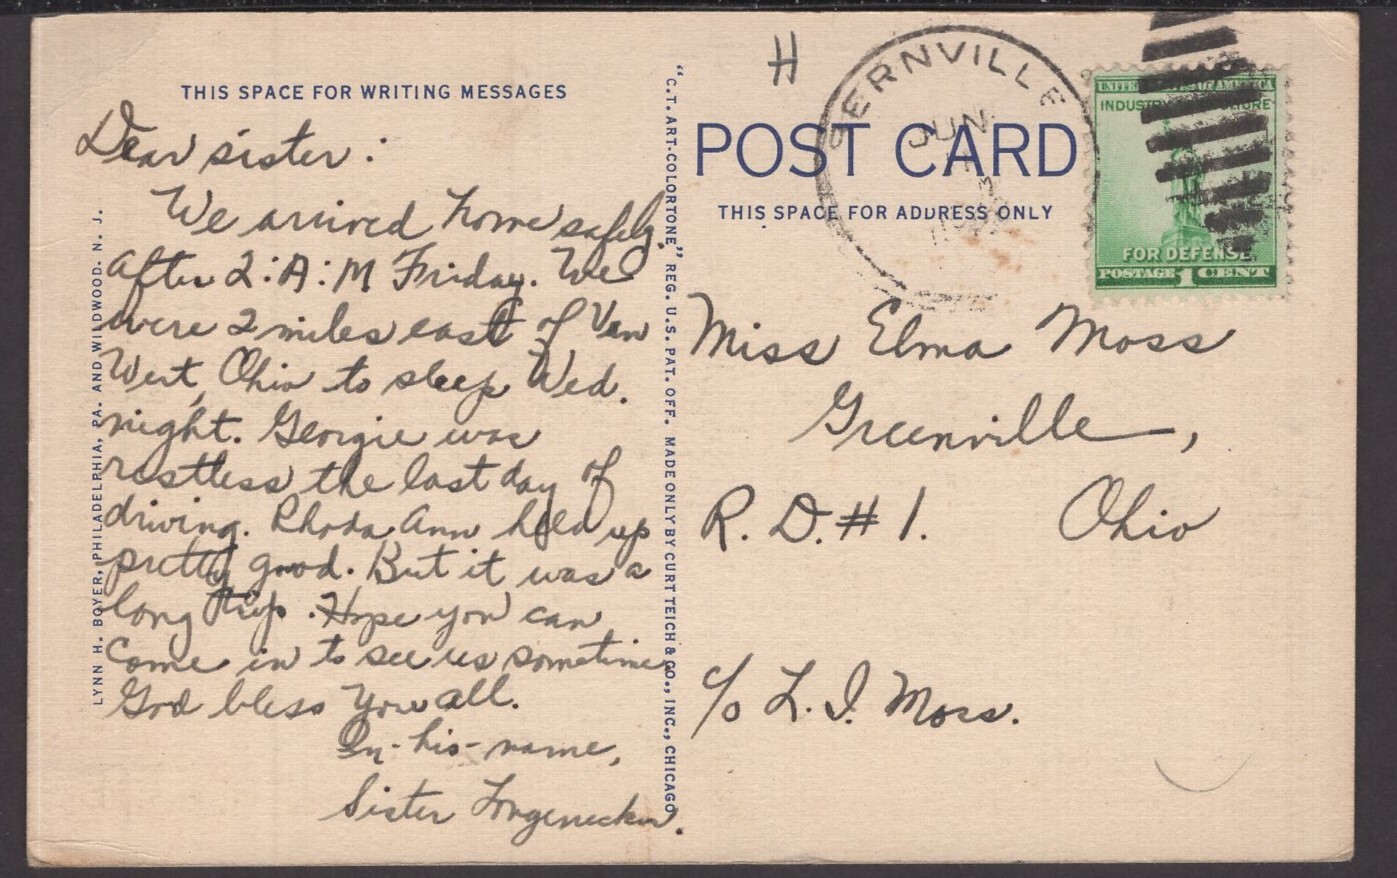 THIS SPACE FOR WRITING MESSAGES
Dear sister:
We arrived home safely.
After 2:A:M Friday. We
were 2 miles east of Van
Wert, Ohio to sleep Wed.
night. Georgie was
restless the last day of
driving. Rhoda Ann held up
pretty good. But it was a
long trip. Hope you can
Come in to see us sometime
God bless You all.
In-his-name,
Sister Longenecker.
LYNN H. BOYER, PHILADELPHIA, PA. AND WILDWOOD, N. J.
"C.T. ART-COLORTONE" REG. U.S. PAT. OFF. MADE ONLY BY CURT TEICH & CO., INC., CHICAGO
H
BERNVILLE
JUN
POST CARD
THIS SPACE FOR ADDRESS ONLY
UNITED STATES OF AMERICA
INDUSTRY AGRICULTURE
FOR DEFENSE
POSTAGE 1 CENT
Miss Elma Moss
Greenville,
R. D. # 1. Ohio
c/o L. I. Moss.